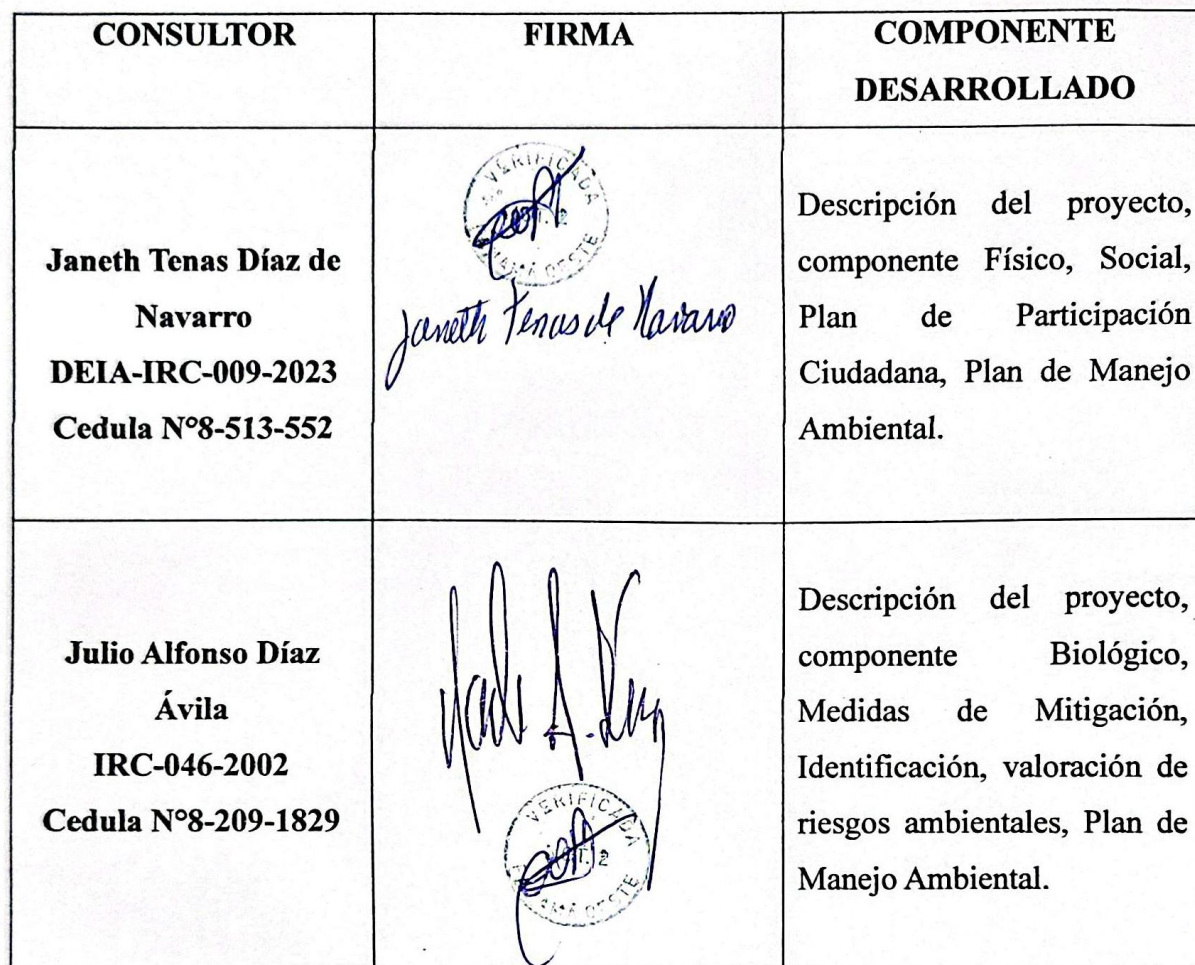 CONSULTOR
FIRMA
COMPONENTE
DESARROLLADO
Janeth Tenas Díaz de
Navarro
DEIA-IRC-009-2023
Cedula N°8-513-552
VERIFICADA
OESTE
Janeth Tenas de Navarro
Descripción del proyecto,
componente Físico, Social,
Plan de Participación
Ciudadana, Plan de Manejo
Ambiental.
Julio Alfonso Díaz
Ávila
IRC-046-2002
Cedula N°8-209-1829
VERIFICADA
OESTE
Descripción del proyecto,
componente Biológico,
Medidas de Mitigación,
Identificación, valoración de
riesgos ambientales, Plan de
Manejo Ambiental.